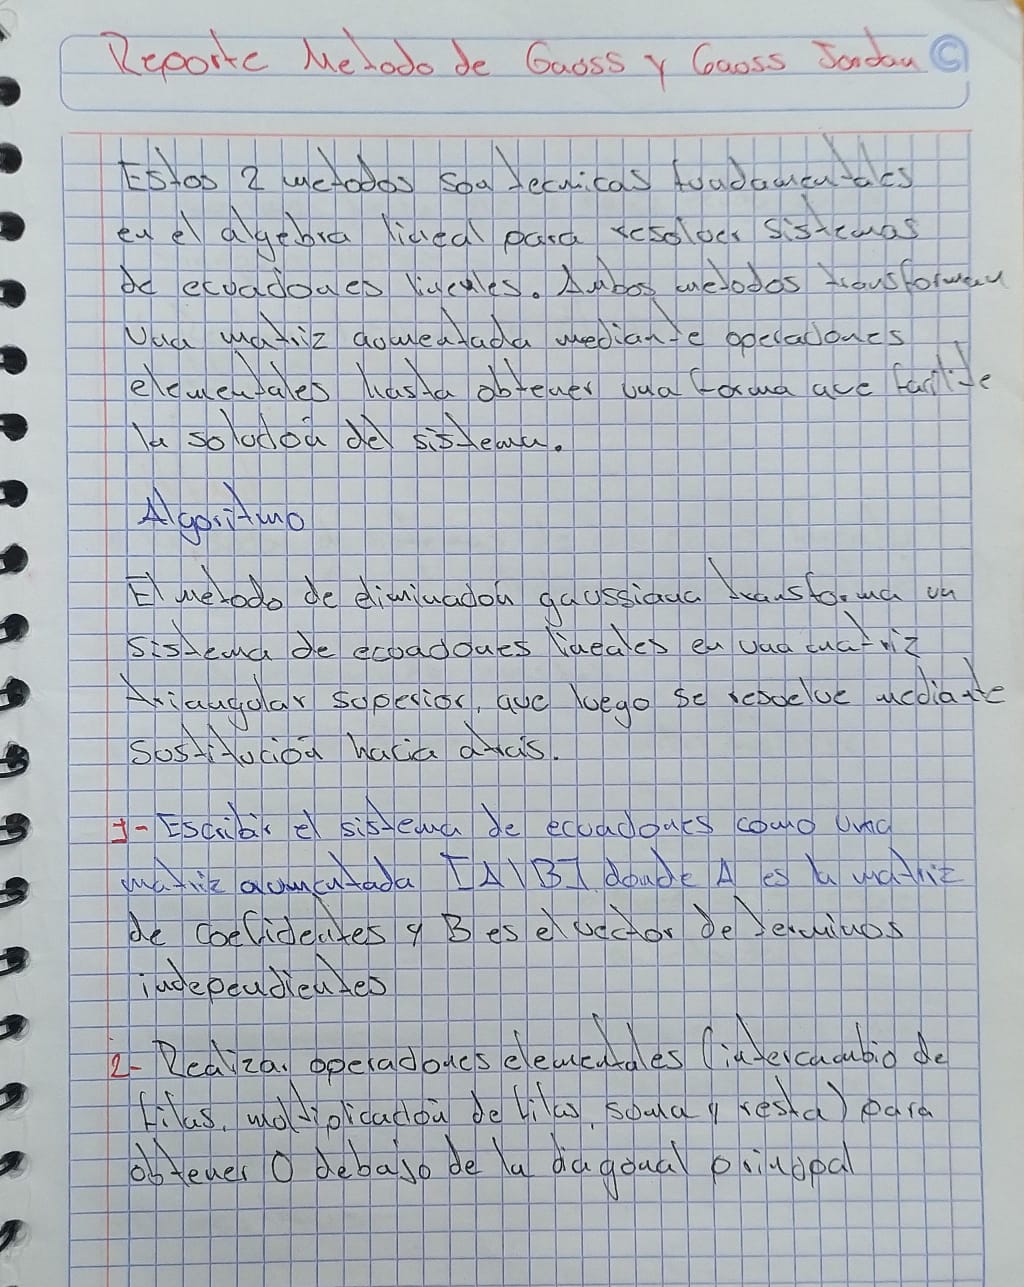 Reporte Metodo de Gauss y Gauss Jordan C
Estos 2 metodos son tecnicas fundamentales
en el algebra lineal para resolver sistemas
de ecuaciones lineales. Ambos metodos transforman
una matriz aumentada mediante operaciones
elementales hasta obtener una forma que facilite
la solución del sistema.
Algoritmo
El metodo de eliminación gaussiana transforma un
sistema de ecuaciones lineales en una matriz
triangular superior, que luego se resuelve mediante
sustitución hacia atrás.
1- Escribir el sistema de ecuaciones como una
matriz aumentada [A|B] donde A es la matriz
de coeficientes y B es el vector de terminos
independientes
2- Realizar operaciones elementales (intercambio de
filas, multiplicación de filas, soma y resta) para
obtener 0 debajo de la diagonal principal